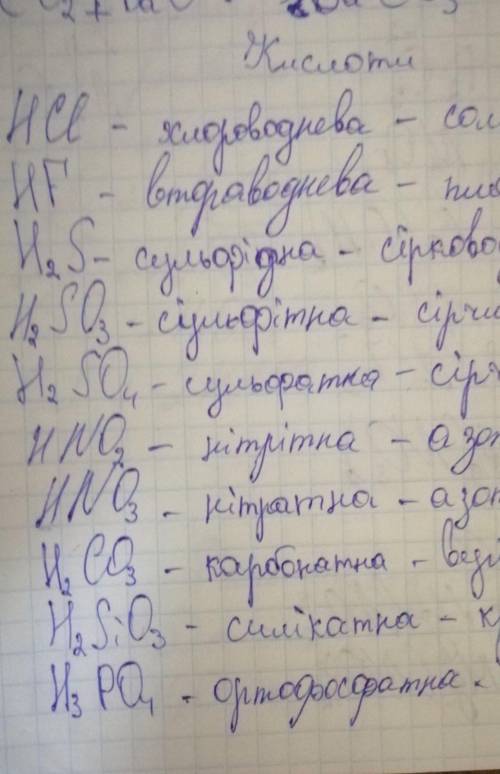 Кислоти
HCl - хлороводнева - сол
HF - втораводнева - пла
H₂S - сульфідна - сірково
H₂SO₃ - сіульфітна - сірчи
H₂SO₄ - сульфатна - сірч
HNO₂ - нітрітна - азот
HNO₃ - нітратна - азот
H₂CO₃ - карбонатна -
H₂SiO₃ - силікатна - к
H₃PO₄ - ортофосфатна -